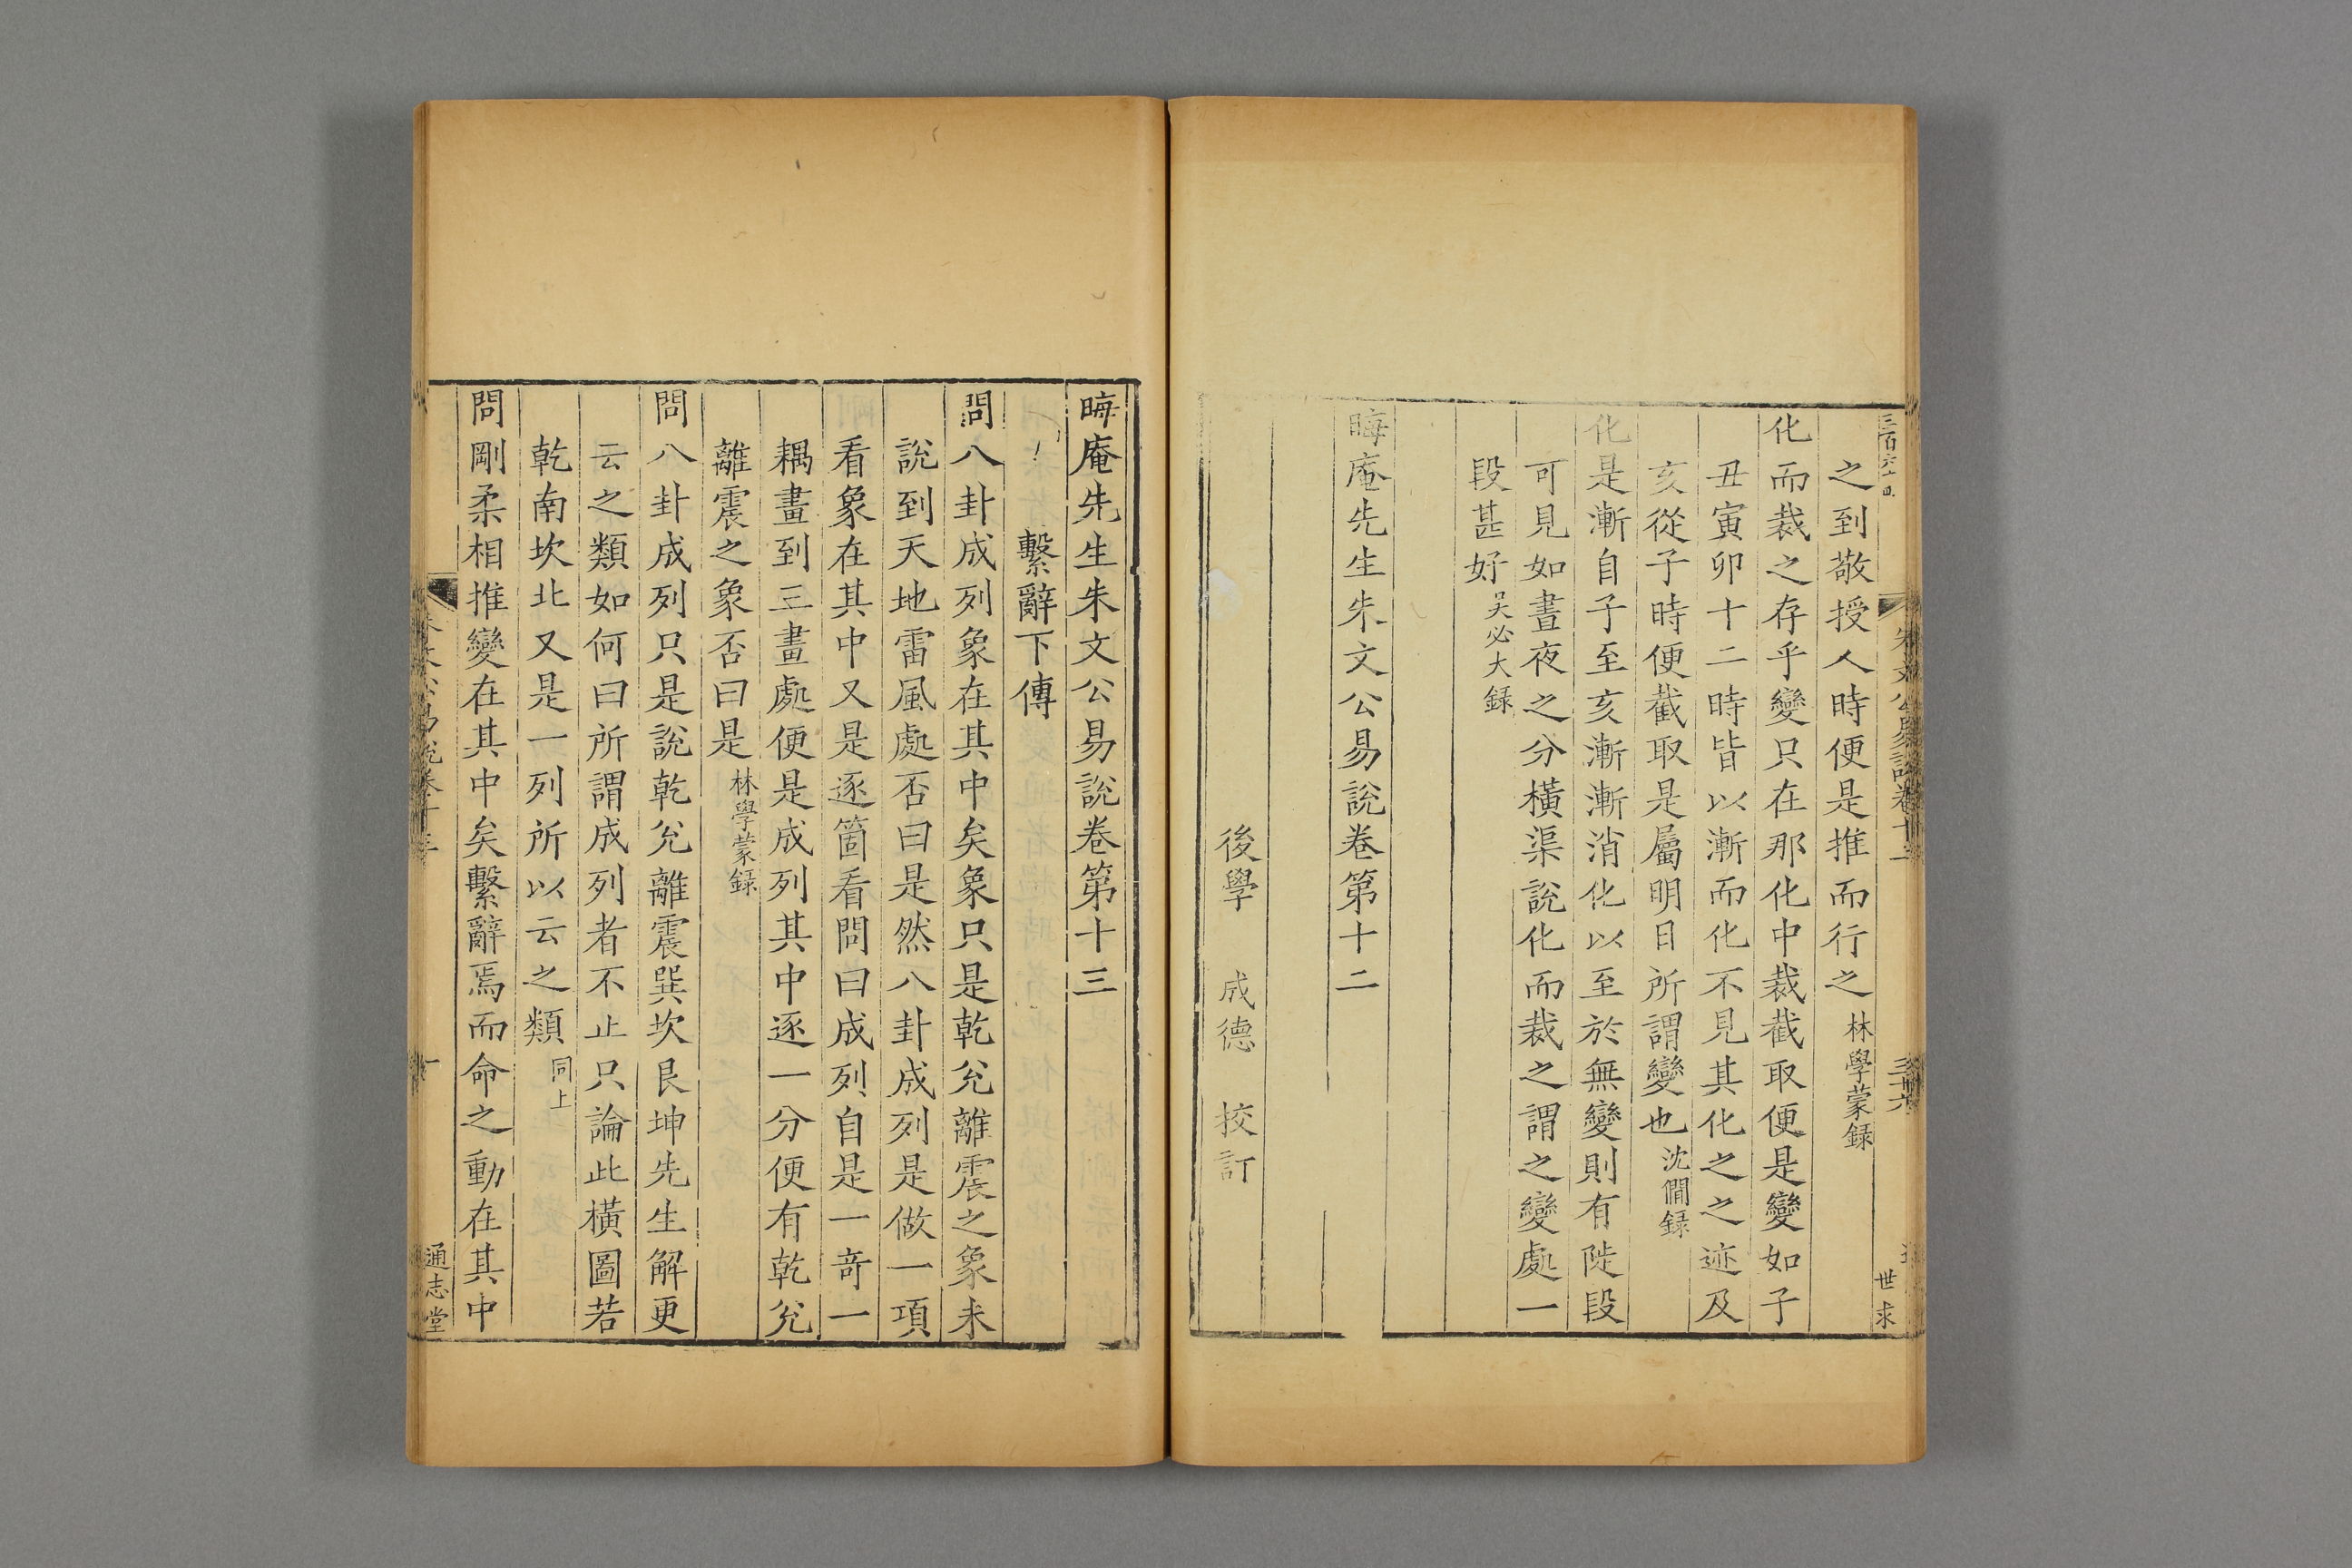 三百六十四
朱文公易說卷十二
三十六
世求
之到敬授人時便是推而行之林學蒙録
化而裁之存乎變只在那化中裁截取便是變如子
丑寅卯十二時皆以漸而化不見其化之之迹及
亥從子時便截取是屬明日所謂變也沈僩録
化是漸自子至亥漸漸消化以至於無變則有陡段
可見如晝夜之分橫渠說化而裁之謂之變處一
段甚好吳必大録
晦庵先生朱文公易說卷第十二
後學 成德 校訂
晦庵先生朱文公易說卷第十三
繫辭下傳
問八卦成列象在其中矣象只是乾兊離震之象未
說到天地雷風處否曰是然八卦成列是做一項
看象在其中又是逐箇看問曰成列自是一竒一
耦畫到三畫處便是成列其中逐一分便有乾兊
離震之象否曰是林學蒙録
問八卦成列只是說乾兊離震巽坎艮坤先生解更
云之類如何曰所謂成列者不止只論此橫圖若
乾南坎北又是一列所以云之類同上
問剛柔相推變在其中矣繫辭焉而命之動在其中
朱文公易說卷十三
一
通志堂